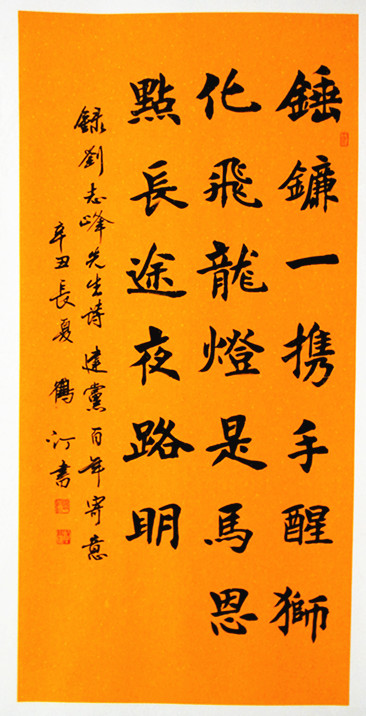 錘鐮一攜手醒獅
化飛龍燈是馬恩
點長途夜路明
錄劉志峰先生詩建黨百年寄意
辛丑長夏鶴汀書